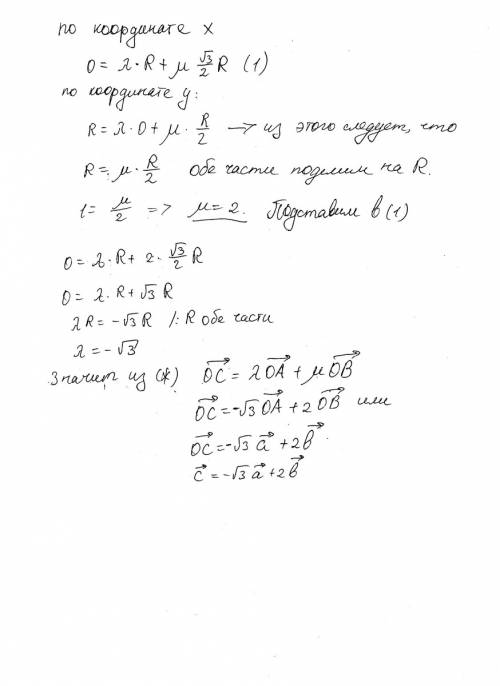 по координате x
0 = λ·R + μ √3/2 R (1)
по координате y:
R = λ·0 + μ · R/2 —> из этого следует, что
R = μ · R/2 обе части поделим на R.
1 = μ/2 => μ = 2. Подставим в (1)
0 = λ·R + 2·√3/2 R
0 = λ·R + √3 R
λR = -√3 R /: R обе части
λ = -√3
Значит из (*) OC→ = λOA→ + μOB→
OC→ = -√3 OA→ + 2OB→ или
OC→ = -√3 a→ + 2b→
c→ = -√3 a→ + 2b→